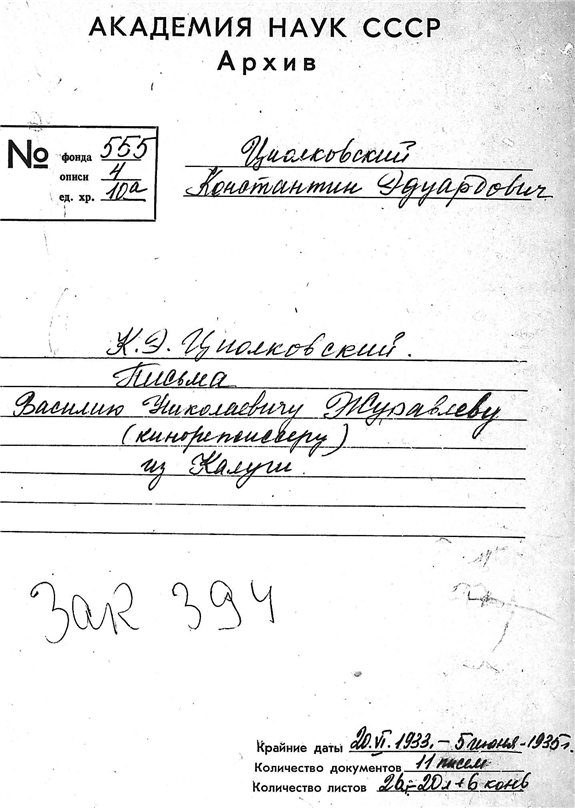 АКАДЕМИЯ НАУК СССР
Архив
№ фонда 555
описи 4
ед. хр. 10а
Циолковский
Константин Эдуардович
К.Э. Циолковский.
Письма
Василию Николаевичу Журавлеву
(кинорежиссеру)
из Калуги.
Зак 394
Крайние даты 20.VI.1933. – 5 июня – 1935г.
Количество документов 11 писем
Количество листов 20л + 6 конв